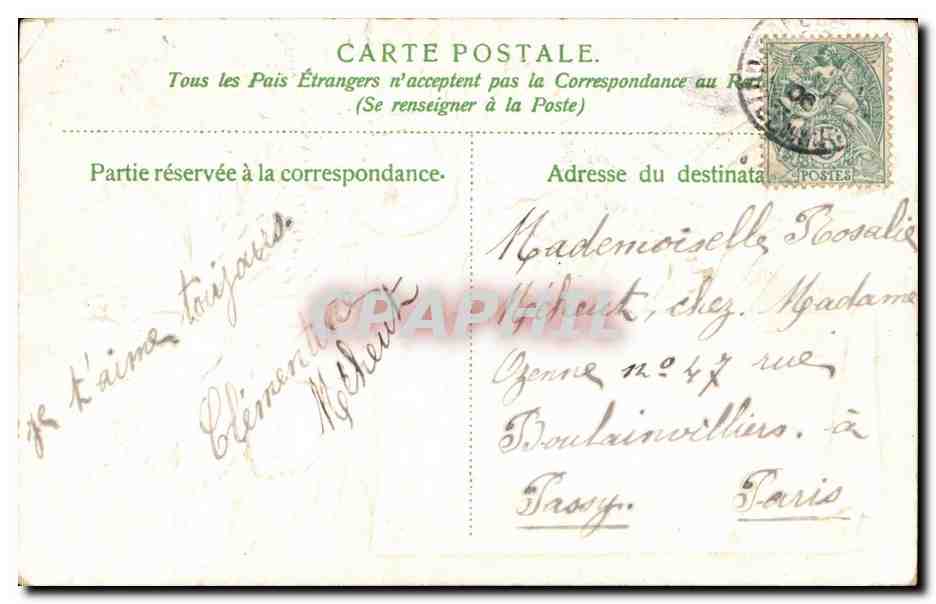 CARTE POSTALE.
Tous les Pais Étrangers n'acceptent pas la Correspondance au
(Se renseigner à la Poste)
Partie réservée à la correspondance.
Je t'aime toujours.
Méheut
Adresse du destinata
POSTES
Mademoiselle Rosalie
Méheut, chez Madame
Ozenne nº 47 rue
Boulainvilliers. à
Passy. Paris
CPAPHIL